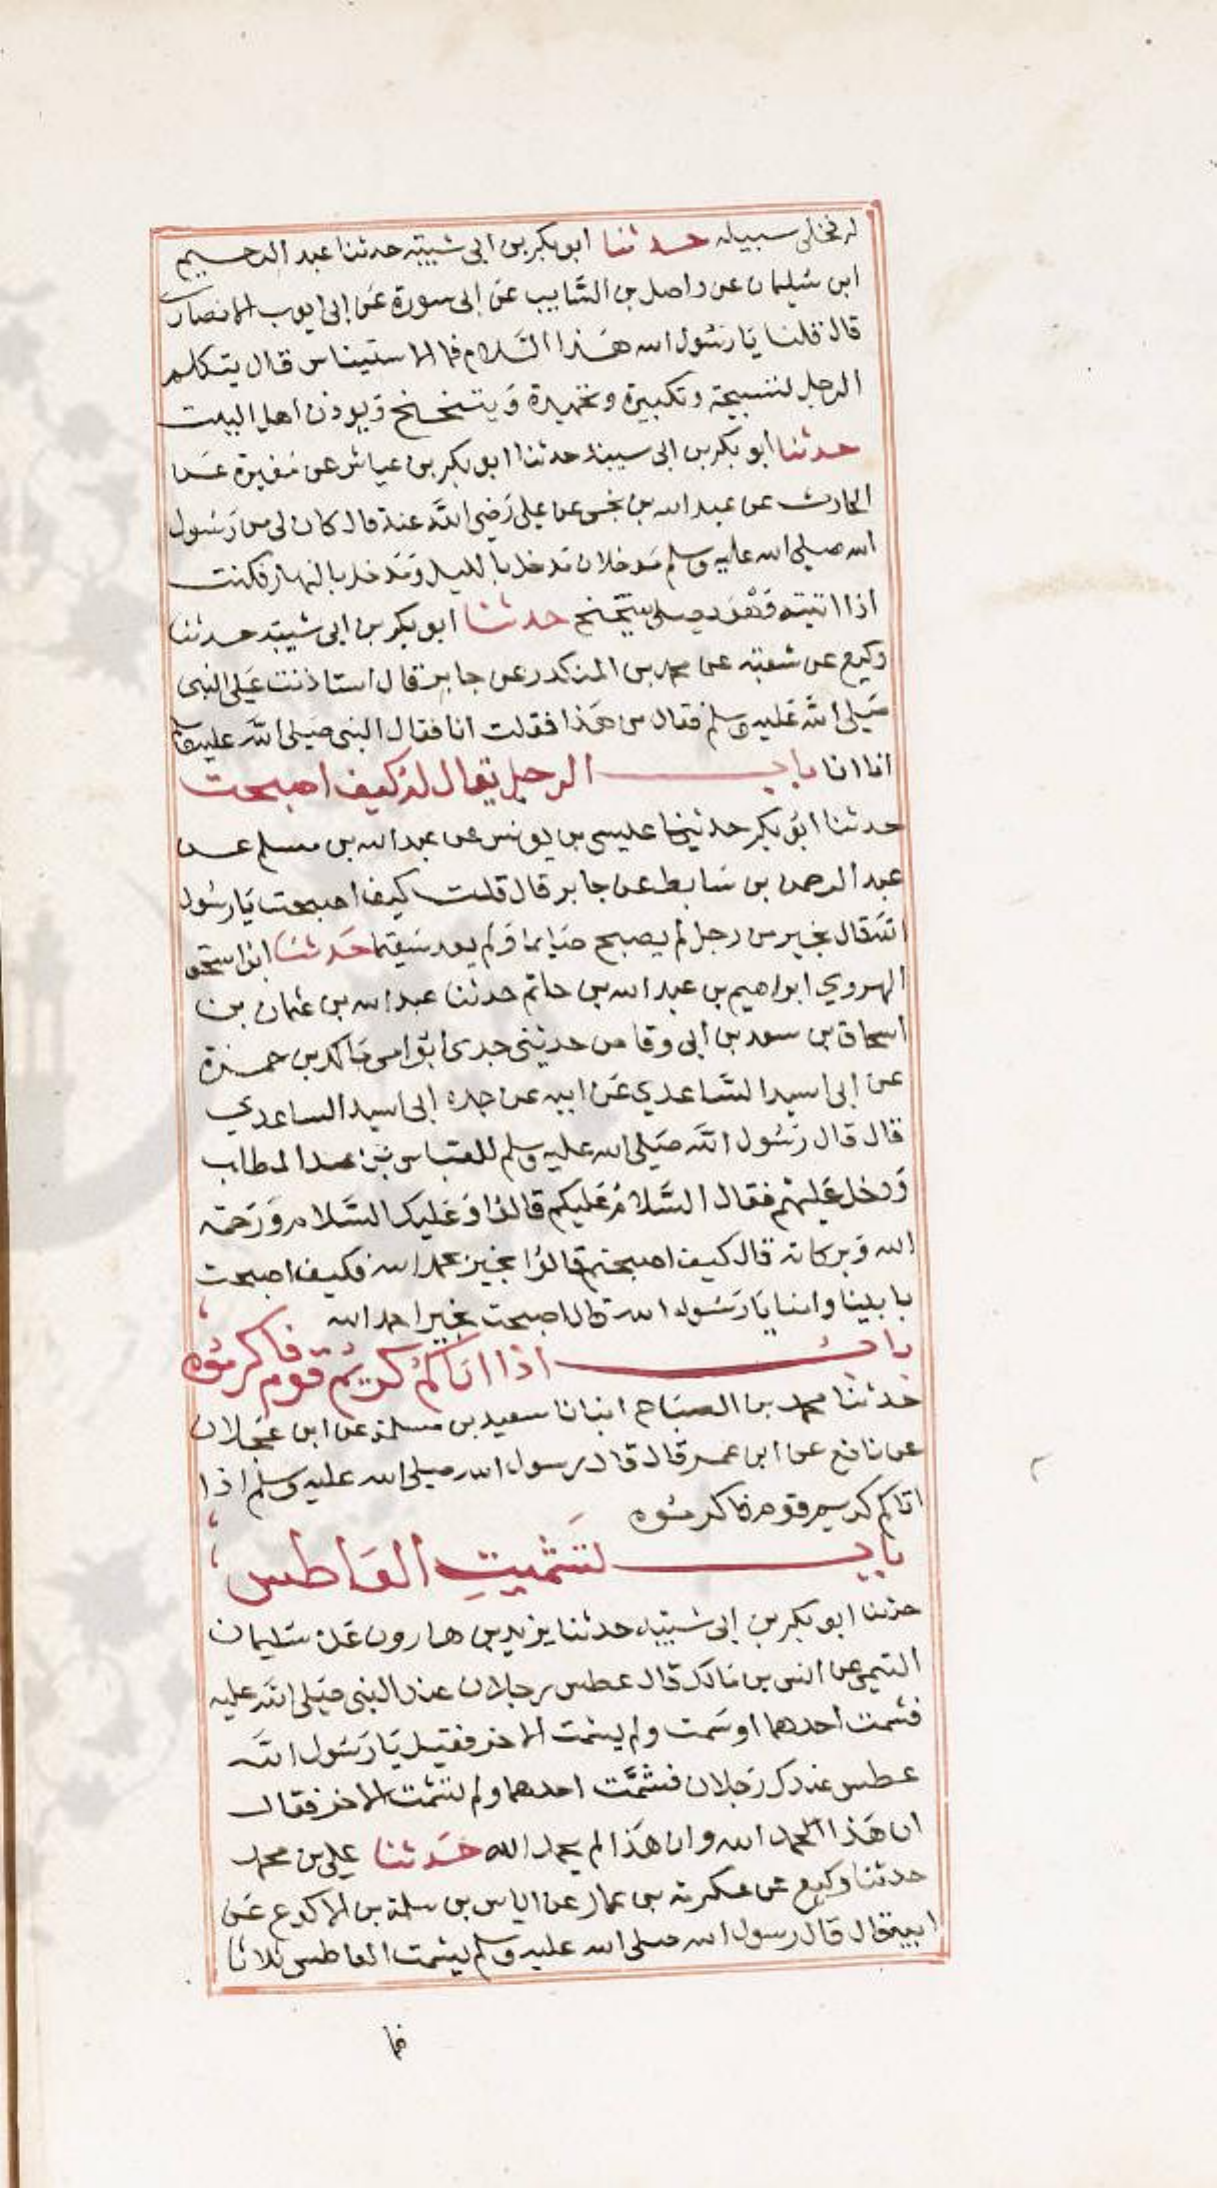 له فخلى سبيله حدثنا ابو بكر بن ابى شيبة حدثنا عبد الرحيم
ابن سُليمان عن واصل بن السَّايب عن ابى سورة عَن ابى ايوب الانصارى
قال قلنا يَا رسُول الله هَذا السَّلام فما الاستيناس قال يتكلم
الرجل لتسبيحة وتكبيرة وتحميدة وَيتنحنح وَيوذن اهل البيت
حدثنا أبو بكر بن ابى سيبة حدثنا ابو بكر بن عياش عن مغيرة عَن
الحارث عن عبد الله بن نجى عن على رَضى الله عنه قال كان لى من رَسُول
الله صلى الله عليه وسلم مَدخلان مَدخل بالليل وَمَدخل بالنهار فكنت
اذا اتيته وَهُوَ يصلى يتنحنح حدثنا ابو بكر بن ابى شيبة حدثنا
وكيع عن شعبة عن محمد بن المنكدر عن جابر قال استاذنت عَلى النبى
صَلى الله عَليه وسلم فقال من هَذا فقلت انا فقال النبى صَلى الله عليه وسلم
انا انا باب الرجل يقال لهُ كيف اصبحت
حدثنا ابُو بكر حدثنا عليسى بن يونس عن عبد الله بن مسلم عن
عبد الرحمن بن سَابط عن جابر قال قلت كيف اصبحت يَا رسُول
الله قال بخير من رجل لم يصبح صَايما وَلم يعد سَقيما حَدثنَا ابو اسحق
الهروي ابراهيم بن عبد الله بن حاتم حدثنا عبد الله بن عثمان بن
اسحاق بن سعد بن أبى وقاص حدثنى جدى أبو امى مَالك بن حمزة
عن ابى اسيد السَّاعدي عَن ابيه عن جده ابى اسيد الساعدي
قال قال رَسُول الله صَلى الله عليه وسلم للعَباس بن عبد المطلب
وَدخل عَليهُم فقال السَّلامُ عَليكم قالوُا وَعَليك السَّلام وَرَحمة
الله وَبركاته قال كيف اصبحتم قالوُا بخير نحمد الله فكيف اصبحت
بابينا وامنا يَا رَسُول الله قال اصبحت بخير احمد الله
باب اذا اتاكم كريمُ قوم فاكرمُوه
حدثنا محمد بن الصبَاح انبانا سعيد بن مسلمة عن ابن عَجلان
عن نافع عن ابن عمر قال قال رسول الله صلى الله عليه وسلم اذا
اتاكم كريم قوم فاكرمُوه
باب لتَشميتِ العَاطس
حدثنا ابو بكر بن ابى شيبه حدثنا يزيد بن هارون عَن سَليمان
التيمى عن انس بن مَالك قال عطس رجلان عند النبى صَلى الله عليه
فشمت أحدهما اوسَمت ولم يشمت الاخر فقيل يَا رَسُول الله
عطس عندك رَجلان فشمَّت احدهما ولم تشمت الاخر فقال
ان هَذا الحمد الله وان هَذا لم يحمد الله حَدثنا على بن محمد
حدثنا وكيع عن عكرمة بن عمار عن اياس بن سلمة بن الاكوع عَن
ابيه قال قال رسول الله صلى الله عليه وسلم يشمت العاطس ثلاثا
فما